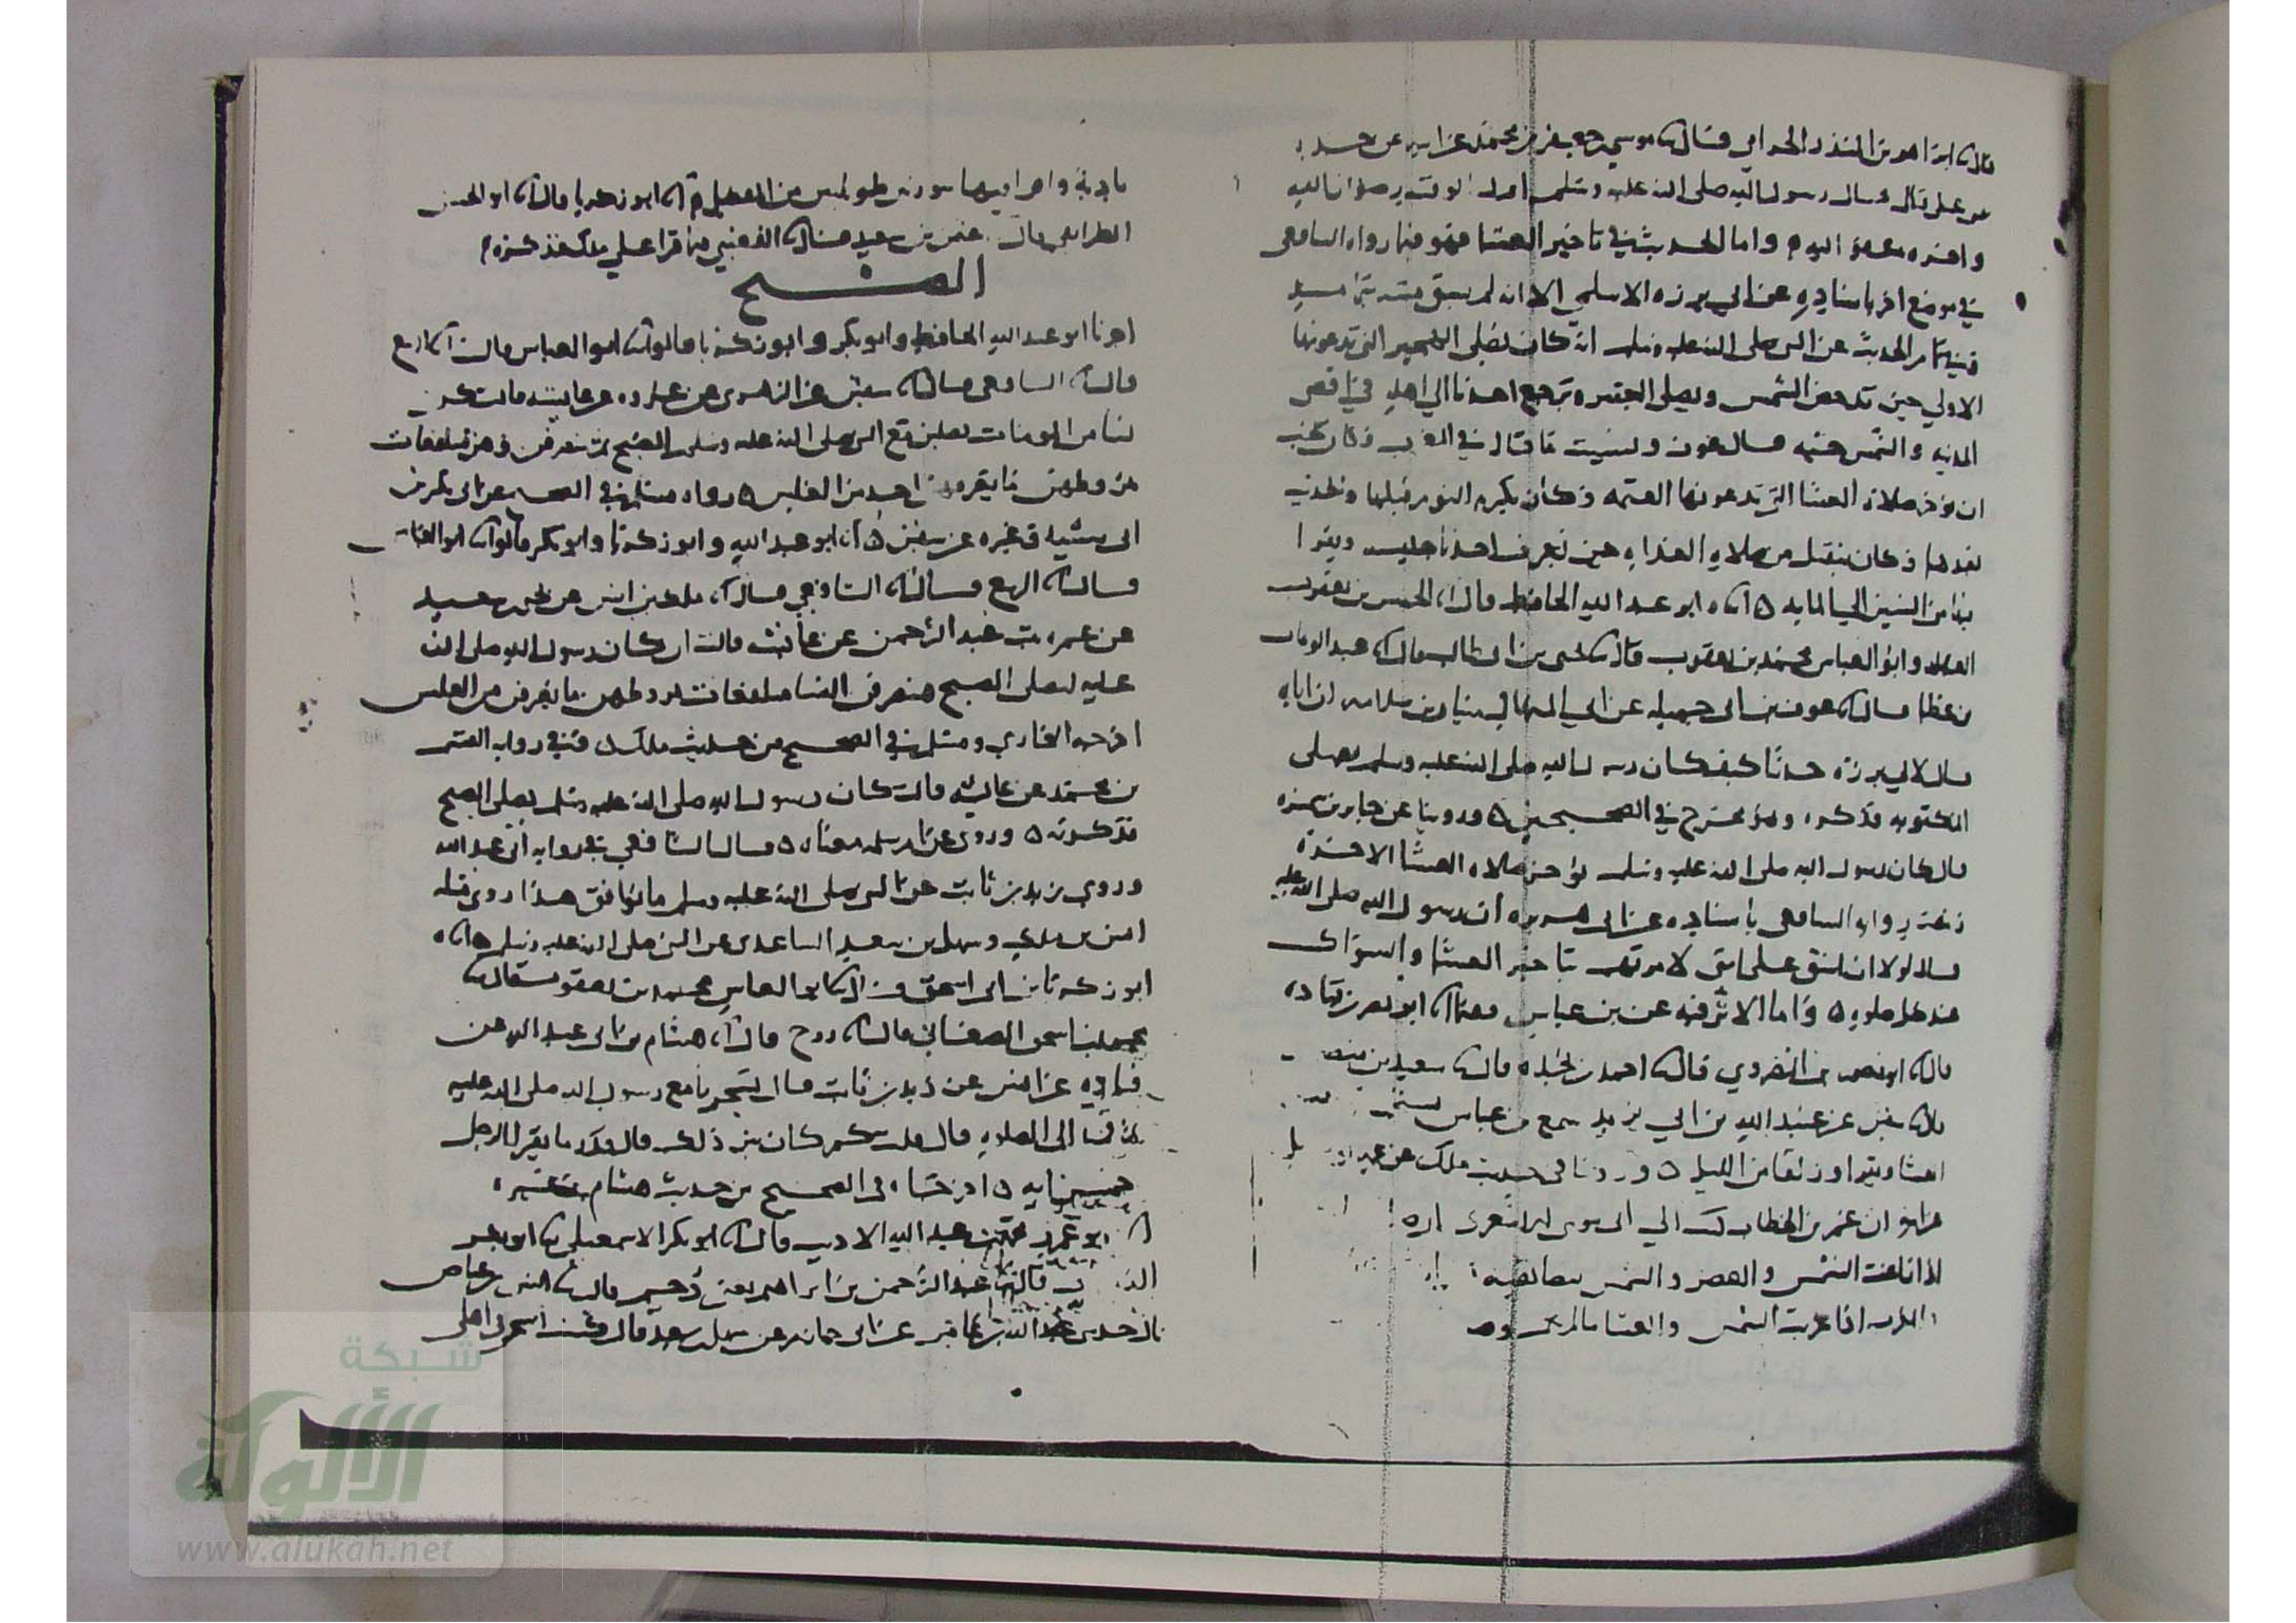 قال ابراهيم بن المنذر الحزامي قال موسى بن جعفر بن محمد عن ابيه عن جده
عن علي قال قال رسول الله صلى الله عليه وسلم اول الوقت رضوان الله
واخره عفو الله واما الحديث في تاخير العشا فهو فيما رواه الشافعي
في موضع اخر باسناده عن ابي برزه الاسلمي الا انه لم يسق متنه
تمام الحديث عن النبي صلى الله عليه وسلم انه كان يصلي الهجير التي تدعونها
الاولي حين تدحض الشمس ويصلي العصر ويرجع احدنا الي اهله في اقصى
المدينه والشمس حيه قال عوف ونسيت ما قال في المغرب وكان يحب
ان يؤخر صلاة العشا التي تدعونها العتمه وكان يكره النوم قبلها والحديث
بعدها وكان ينفتل من صلاة الغداه حين يعرف احدنا جليسه ويقرا
من الستين الي المايه ابو عبد الله الحافظ قال الحسن بن يعقوب
العدل وابو العباس محمد بن يعقوب قال يحيى بن ابي طالب قال عبد الوهاب
بن عطا قال عوف بن ابي جميله عن ابي المنهال سيار بن سلامه ان اباه
قال لابي برزه حدثنا كيف كان رسول الله صلى الله عليه وسلم يصلي
المكتوبه فذكره وهو مخرج في الصحيحين وروينا عن جابر بن سمره
قال كان رسول الله صلى الله عليه وسلم يؤخر صلاة العشا الاخره
رواه الشافعي باسناده عن ابي هريره ان رسول الله صلى الله عليه
قال لولا ان اشق على امتي لامرتهم بتاخير العشا والسواك
عند كل صلوه واما الاثر فيه عن بن عباس ابو نصر بن قتاده
قال ابو منصور النضروي قال احمد بن نجده قال سعيد بن منصور
سفين عن عبيد الله بن ابي يزيد سمع بن عباس
العشا ويتلوا وزلفا من الليل وروينا في حديث ملك عن
ان عمر بن الخطاب كتب الي ابي موسى الاشعري
اذا زاغت الشمس والعصر والشمس بيضا نقيه
والمغرب اذا غربت الشمس والعشا ما لم
بادية واقرا فيها سورتين طويلتين من المفصل ابو زكريا قال ابو الحسن
الطرايفي قال عثمن بن سعيد قال القعنبي فيما قرا على ملك فذكره
الصبح
اخبرنا ابو عبد الله الحافظ وابو بكر وابو زكريا قالوا ابو العباس قال الربيع
قال الشافعي قال سفين عن الزهري عن عروه عن عايشه قالت كن
نسا من المومنات يصلين مع النبي صلى الله عليه وسلم الصبح ثم ينصرفن وهن متلفعات
بمروطهن ما يعرفهن احد من الغلس رواه مسلم في الصحيح عن ابي بكر بن
ابي شيبه وغيره عن سفين ابو عبد الله وابو زكريا وابو بكر قالوا ابو العباس
قال الربيع قال الشافعي قال ملك بن انس عن يحيى بن سعيد
عن عمره بنت عبد الرحمن عن عائشه قالت ان كان رسول الله صلى الله
عليه ليصلي الصبح فينصرف النسا متلفعات بمروطهن ما يعرفن من الغلس
اخرجه البخاري ومسلم في الصحيح من حديث ملك وفي روايه القسم
بن محمد عن عايشه قالت كان رسول الله صلى الله عليه وسلم يصلي الصبح
فذكرته وروي عن ام سلمه معناه قال الشافعي في روايه ابي عبد الله
وروى زيد بن ثابت عن النبي صلى الله عليه وسلم ما يوافق هذا وروى مثله
انس بن ملك وسهل بن سعد الساعدي عن النبي صلى الله عليه وسلم
ابو زكريا بن ابي اسحق ابو العباس محمد بن يعقوب قال
محمد بن اسحق الصغاني قال روح قال هشام بن ابي عبد الله عن
قتاده عن انس عن زيد بن ثابت قال تسحرنا مع رسول الله صلى الله عليه
ثم قمنا الى الصلوه قال قلت كم كان بين ذلك قال قدر ما يقرا الرجل
خمسين ايه اخرجاه في الصحيح من حديث هشام وغيره
ابو عمرو محمد بن عبد الله الاديب قال ابو بكر الاسمعيلي
قال عبد الرحمن بن ابراهيم يعني دحيم قال انس بن عياض
قال حدثني عبد الله بن عامر عن ابي حازم عن سهل بن سعد قال كنت اتسحر في اهلي
شبكة
الألوكة
www.alukah.net